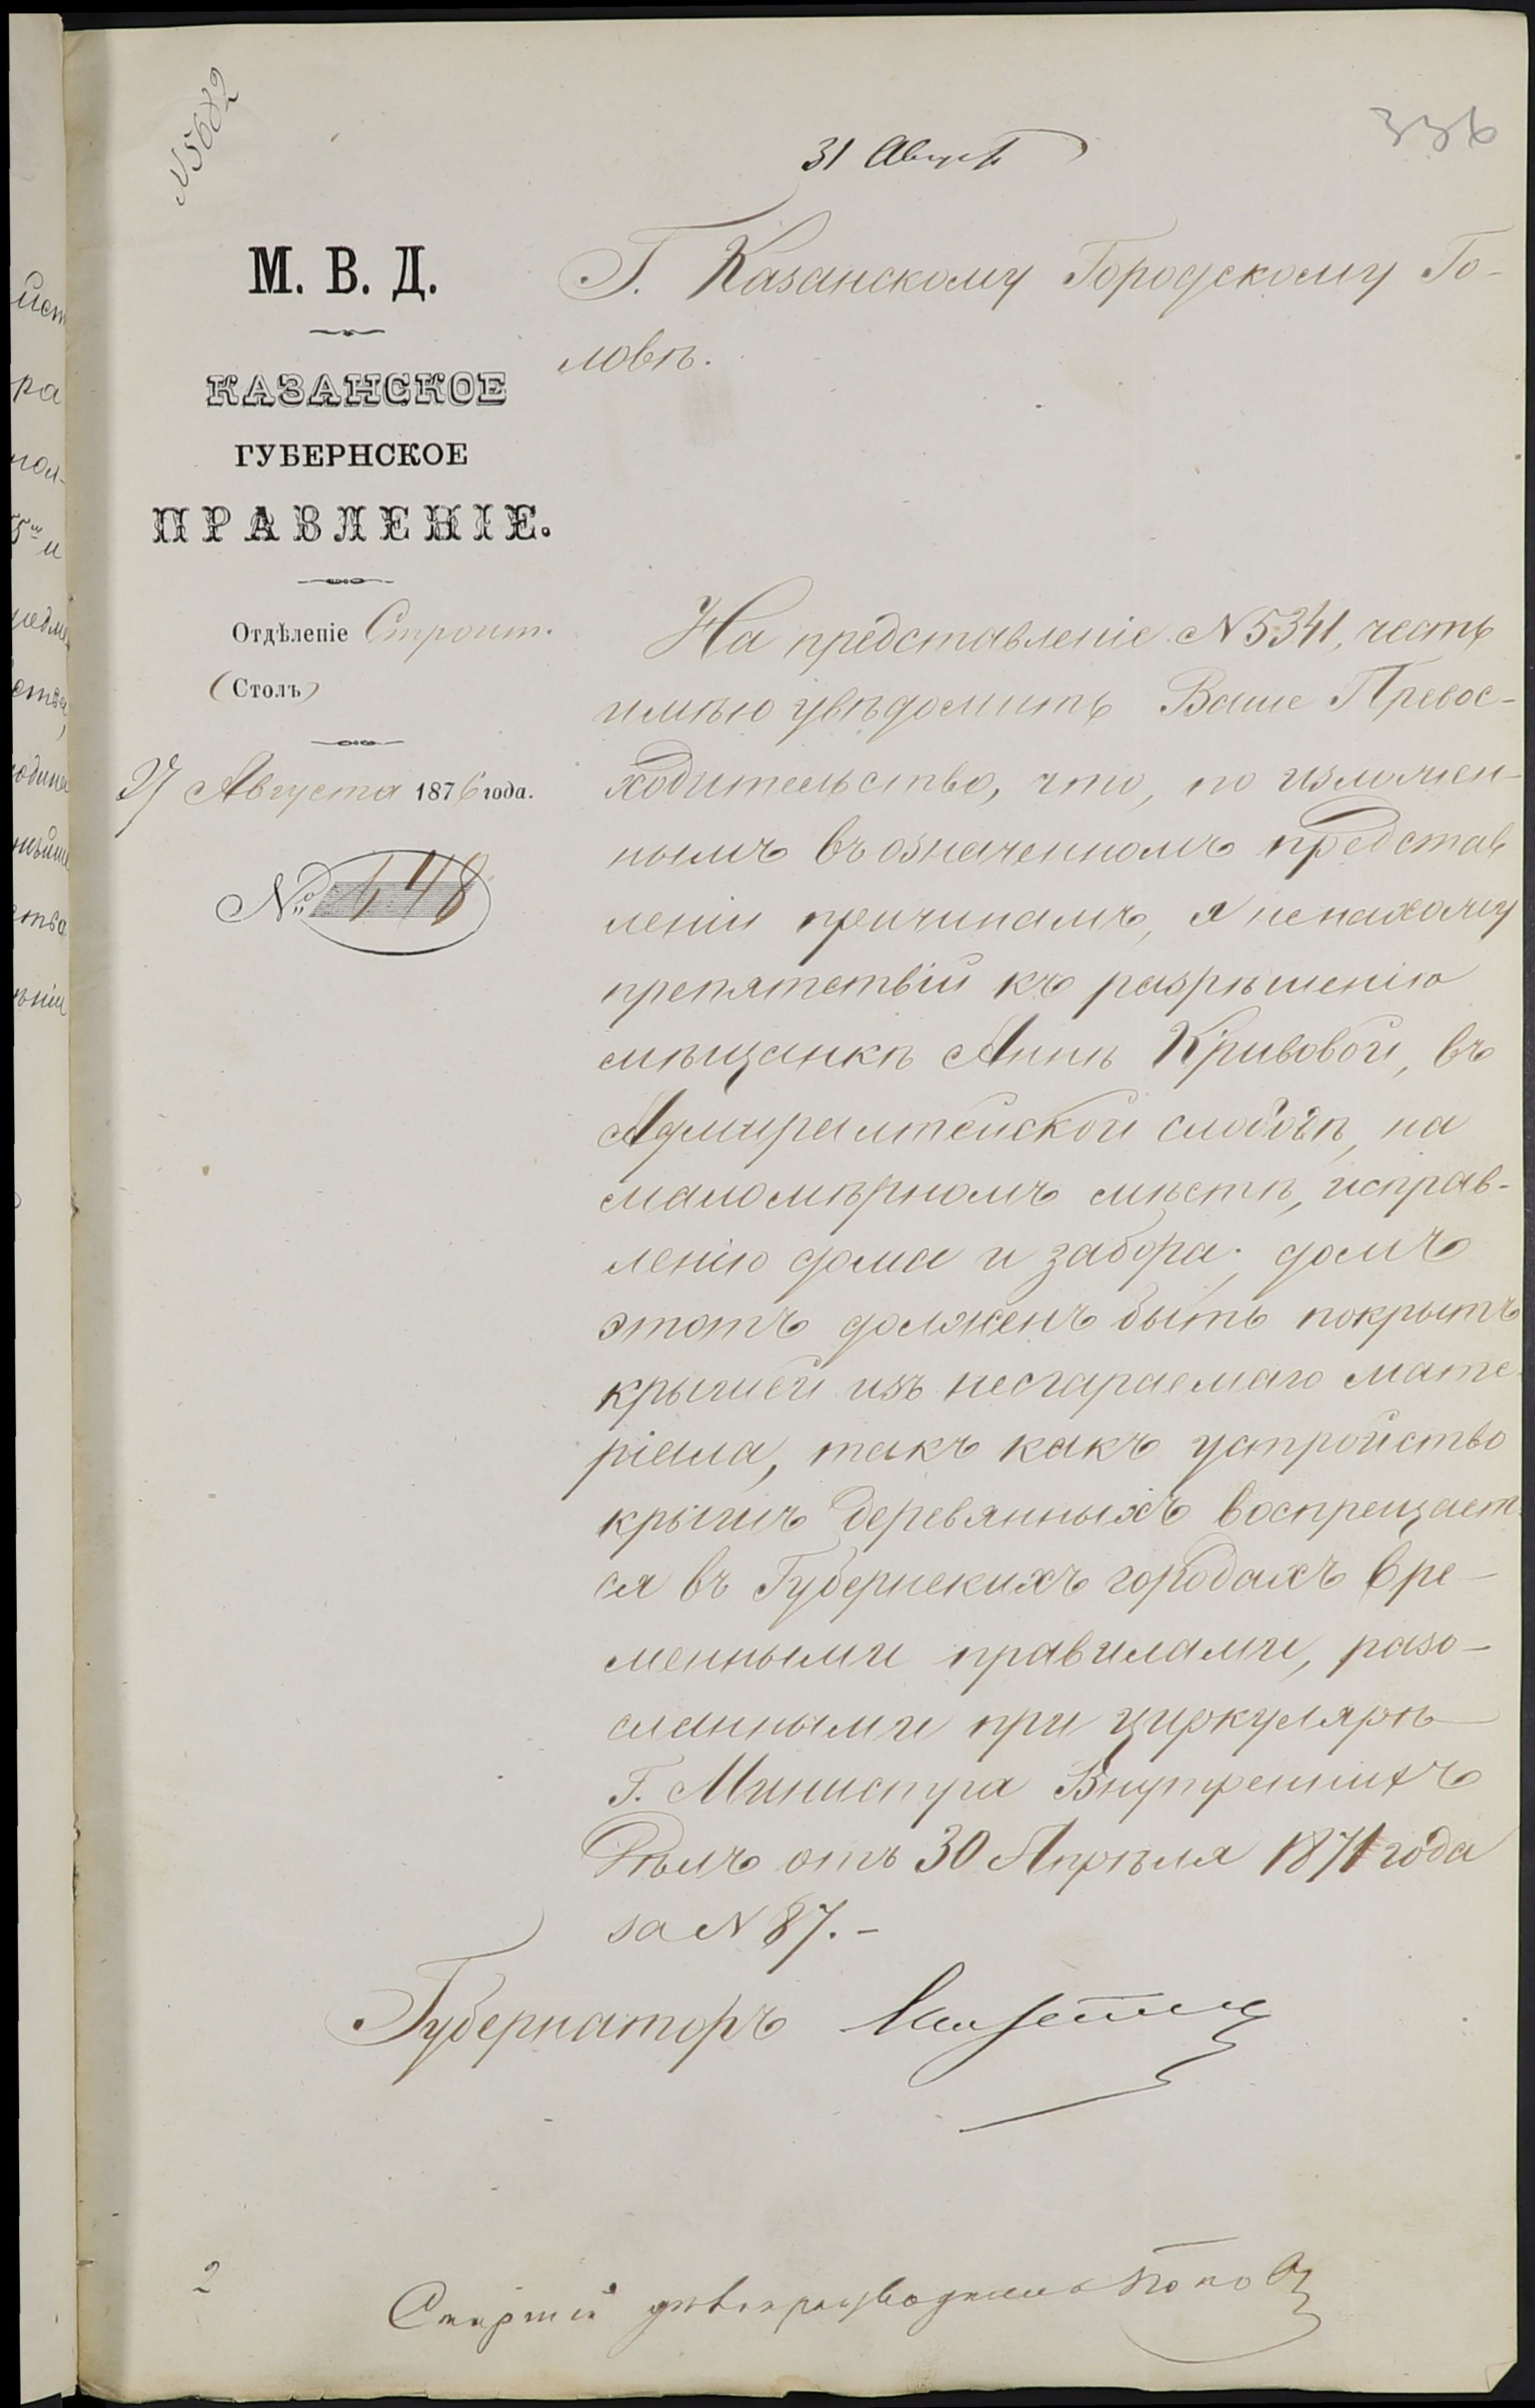 N5682
336
31 Август
М. В. Д.
КАЗАНСКОЕ
ГУБЕРНСКОЕ
ПРАВЛЕНІЕ.
Отдѣленіе Строит.
(Столъ)
27 Августа 1876 года.
№ 448
Г. Казанскому Городскому Го-
ловѣ.
На представленіе N5341, честь
имѣю увѣдомить Ваше Превос-
ходительство, что, по изложен-
нымъ въ означенномъ представ
леніи причинамъ, я не нахожу
препятствій къ разрѣшенію
мѣщанкѣ Аннѣ Кривовой, въ
Адмиралтейской слободѣ, на
маломѣрномъ мѣстѣ, исправ-
ленію дома и забора; домъ
этотъ долженъ быть покрытъ
крышей изъ несгараемаго мате
ріала, такъ какъ устройство
крышъ деревянныхъ воспрещает
ся въ Губернскихъ городахъ вре-
менными правилами, разо-
сланными при циркулярѣ
Г. Министра Внутреннихъ
Дѣлъ отъ 30 Апрѣля 1871 года
за N 87.-
Губернаторъ
Старшій дѣлопроизводитель Попов
2
йст
ра
пол-
ства,
ства